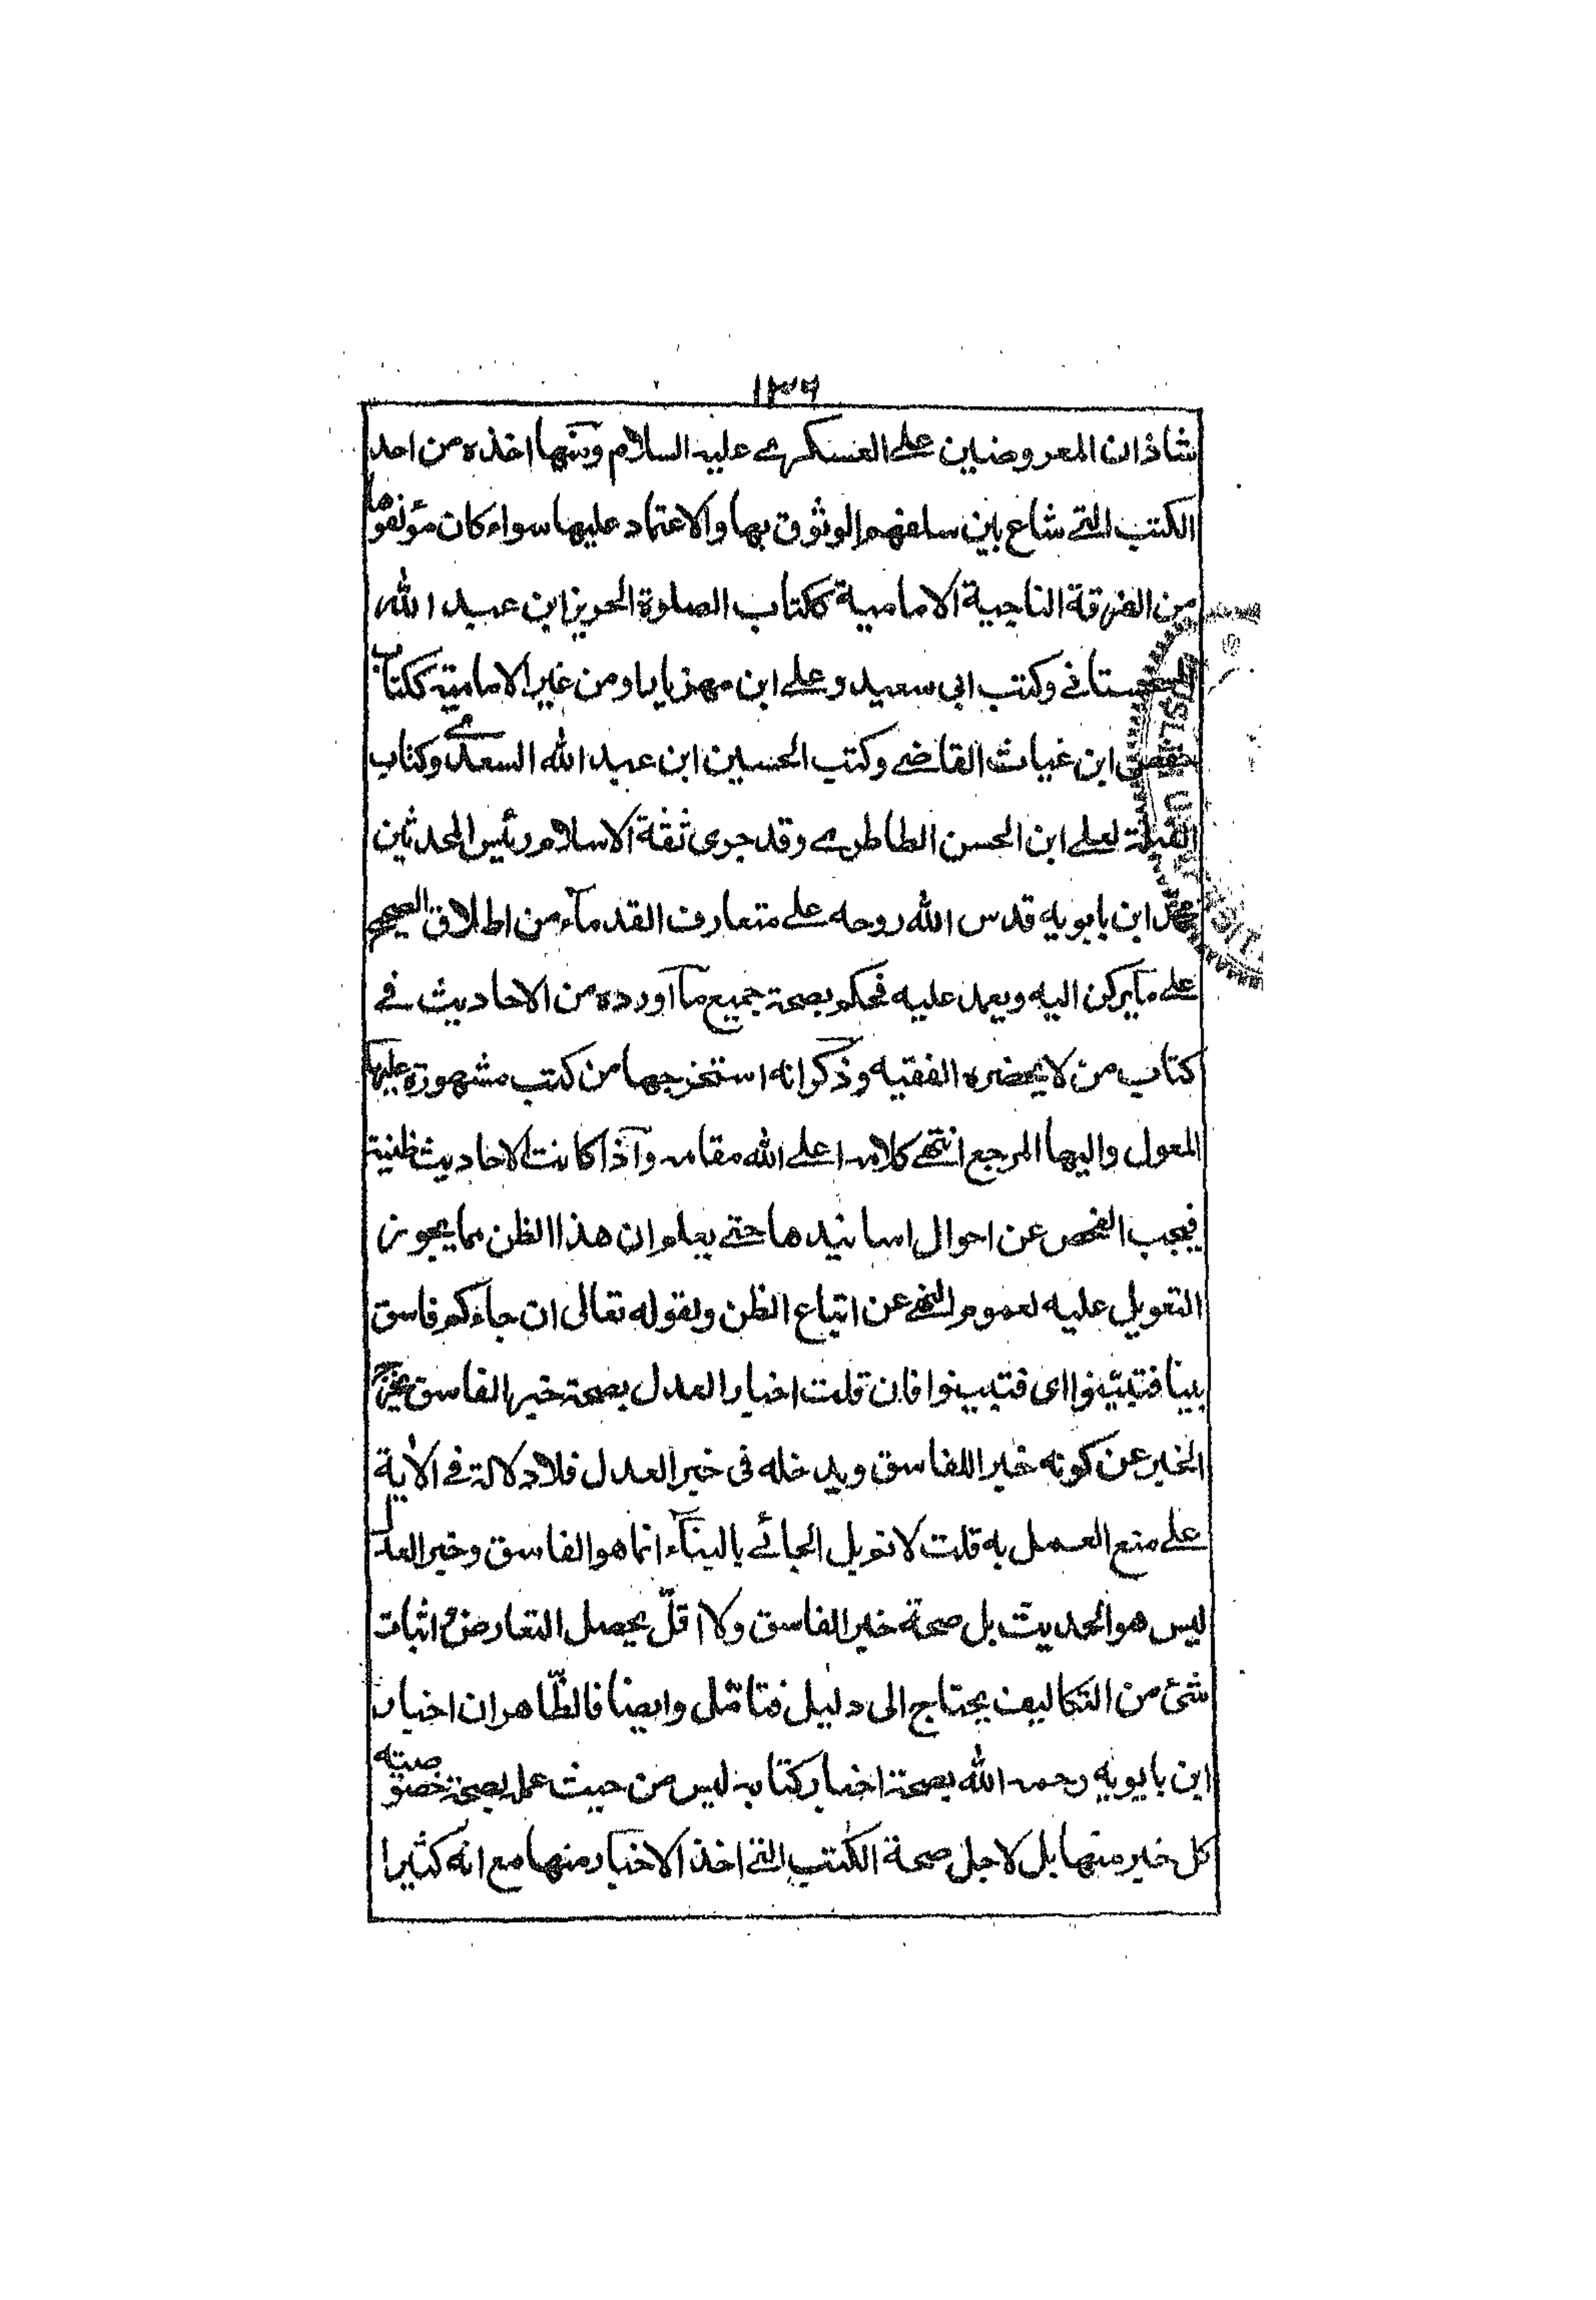 ١٣٦
شاذان المعروضين على العسكرى عليه السلام ومنها اخذه من احد
الكتب التى شاع بين سلفهم الوثوق بها والاعتماد عليها سواء كان مؤلفوها
من الفرقة الناجية الامامية ككتاب الصلوة لحريز ابن عبد الله
السجستانى وكتب ابى سعيد وعلى ابن مهزيار او من غير الامامية ككتاب
حفص ابن غياث القاضى وكتب الحسين ابن عبد الله السعدى وكتاب
القبلة لعلى ابن الحسن الطاطرى وقد جرى ثقة الاسلام رئيس المحدثين
محمد ابن بابويه قدس الله روحه على متعارف القدمآء من اطلاق الصحيح
على ما يركن اليه ويعمل عليه فحكم بصحة جميع مآ اورده من الاحاديث فى
كتاب من لا يحضره الفقيه وذكر انه استخرجها من كتب مشهورة عليها
المعول واليها المرجع انتهى كلامه اعلى الله مقامه وآذا كانت الاحاديث ظنية
فيجب الفحص عن احوال اسانيدها حتى يعلم ان هذا الظن مما يجوز
التعويل عليه لعموم النهى عن اتباع الظن ولقوله تعالى ان جاءكم فاسق
بنبا فتبينوا اى فتثبتوا فان قلت اخبار العدل بصحة خبر الفاسق يخرج
الخبر عن كونه خبرا للفاسق ويدخله فى خبر العدل فلا دلالة فى الآية
على منع العمل به قلت لا نويل الجائى بالبنآء انما هو الفاسق وخبر العدل
ليس هو الحديث بل صحة خبر الفاسق ولا اقلّ يحصل التعارض و اثبات
شئ من التكاليف يحتاج الى دليل فتامّل وايضا فالظّاهر ان اخبار
ابن بابويه رحمه الله بصحة اخبار كتابه ليس من حيث عمله بصحة خصوصيته
كل خبر منها بل لاجل صحة الكتب التى اخذ الاخبار منها مع انه كثيرا